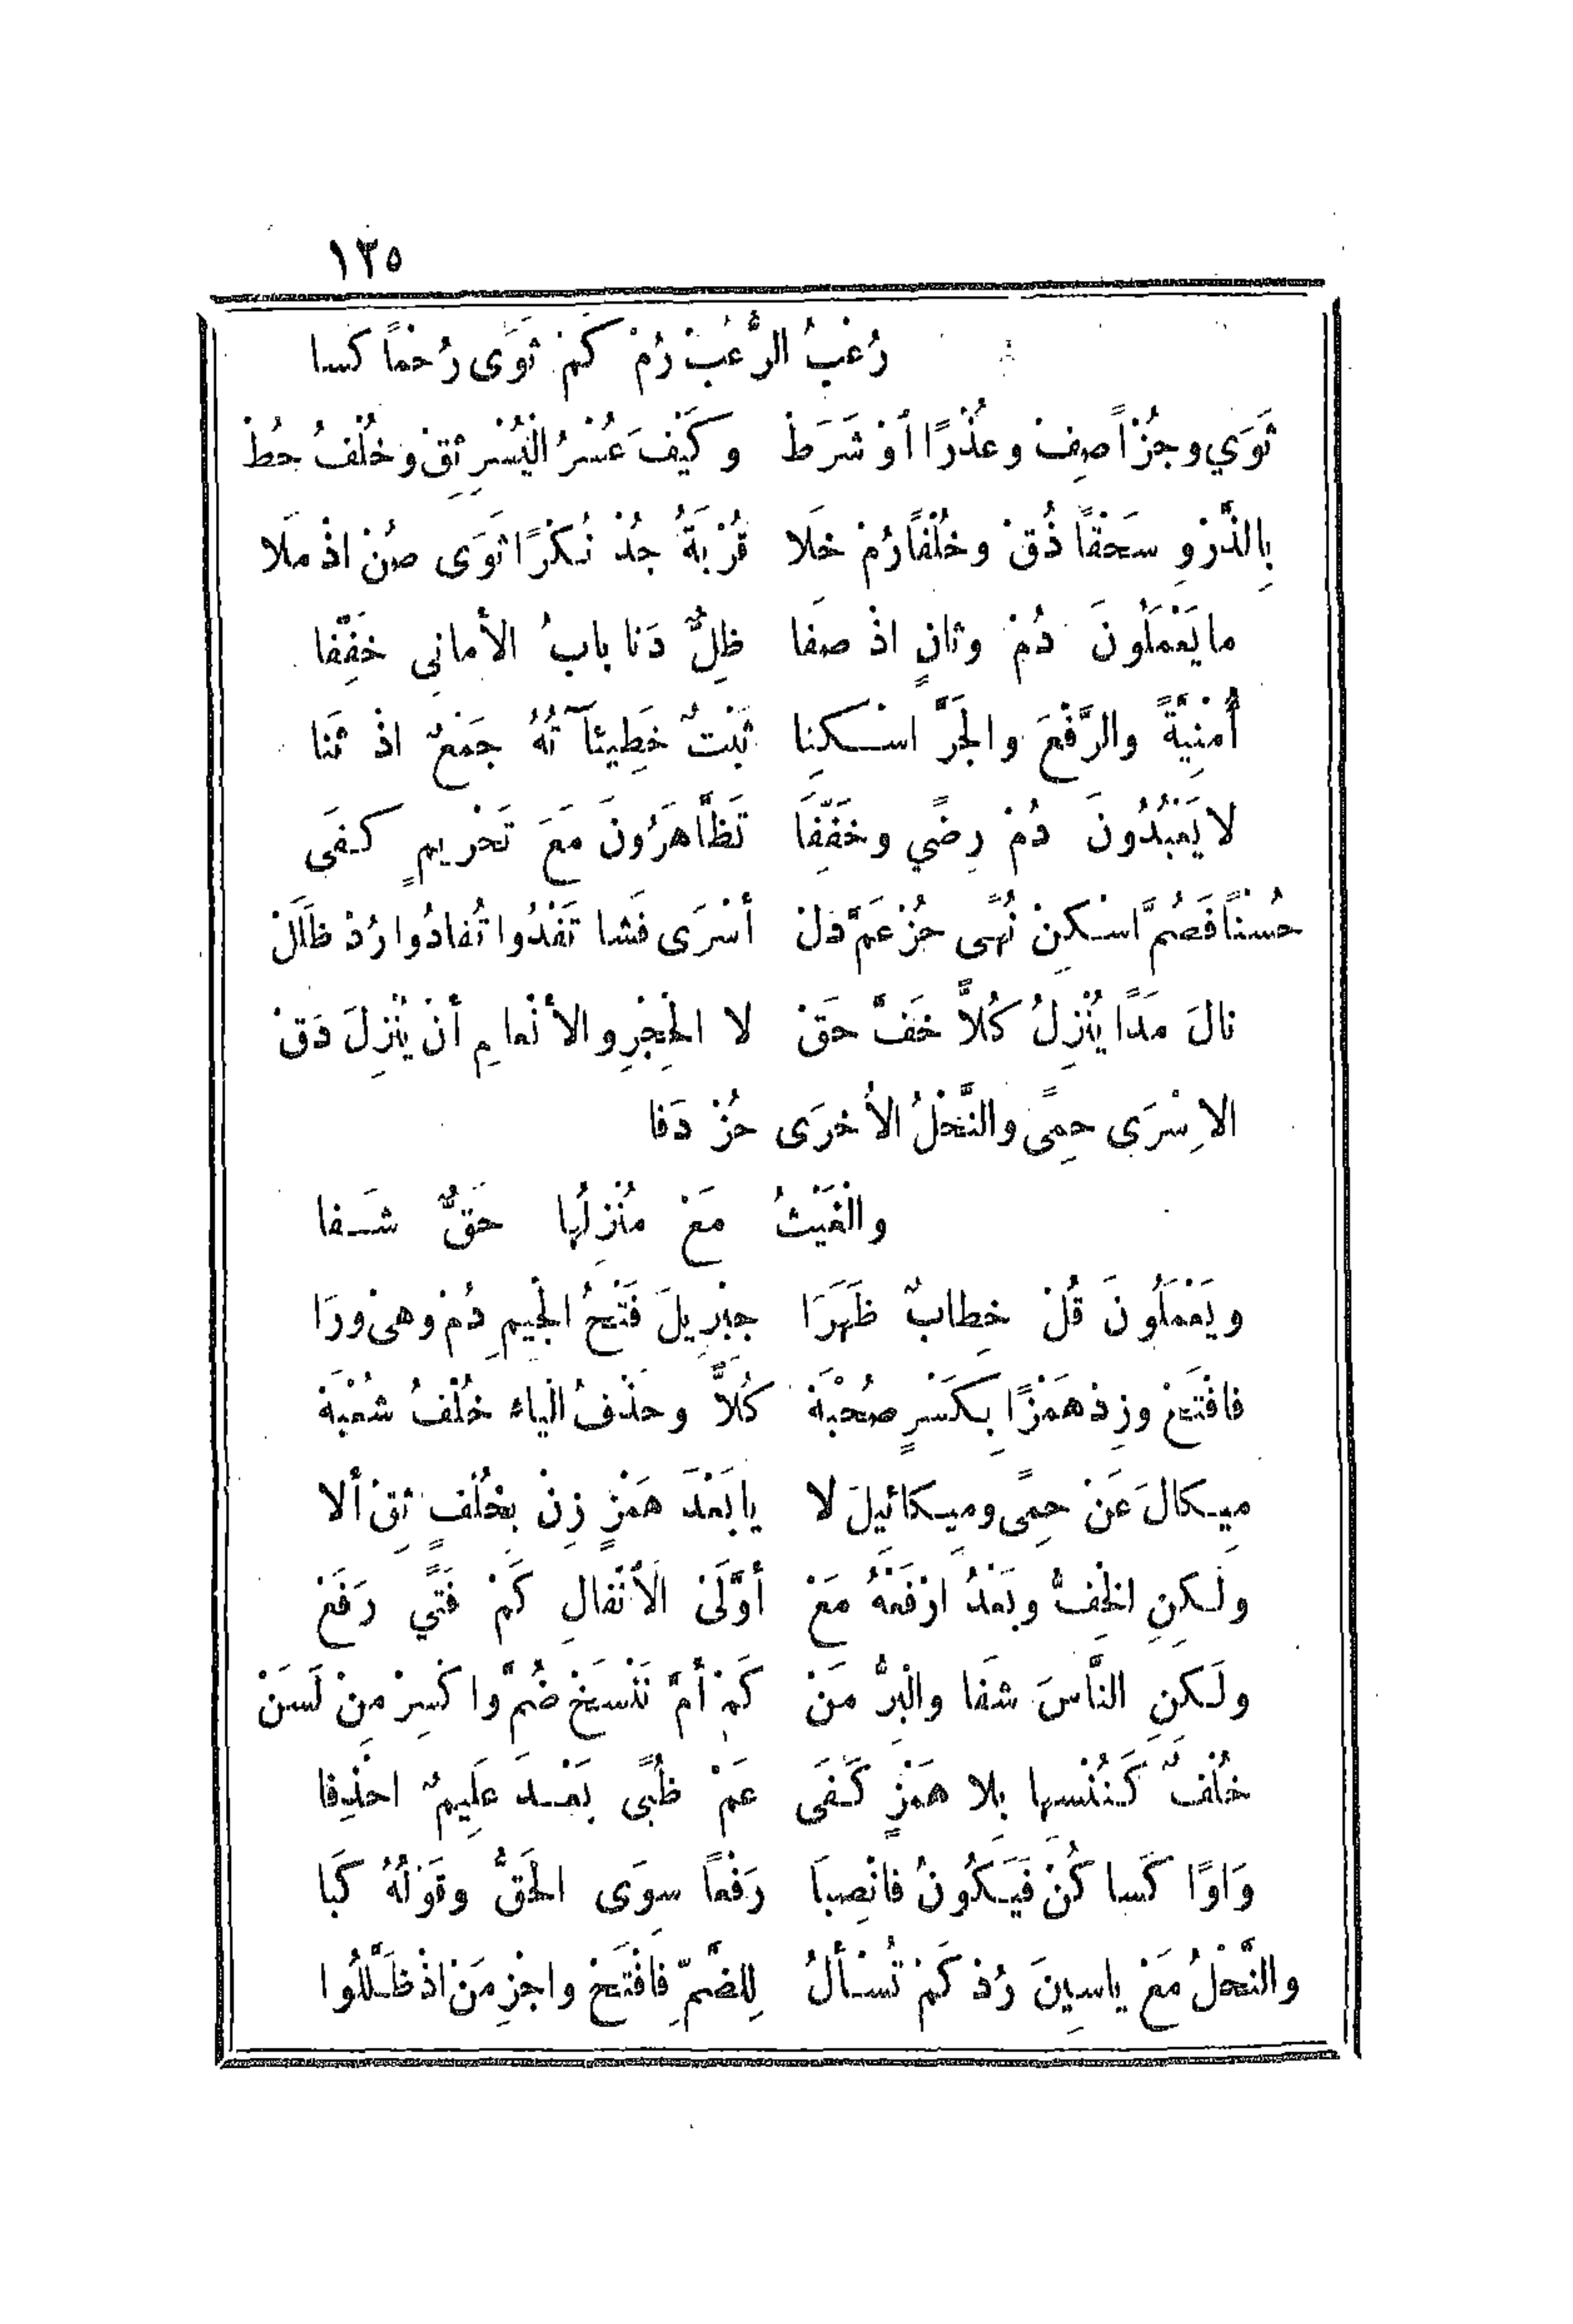 ١٣٥
رُعْبُ الرُّعْبُ رُمْ كَمْ ثَوَى رُحْمًا كسا
ثَوَي وجُزْأً صِفْ وعُذْرًا أوْ شَرَطْ وكَيْفَ عُسْرُ الْيُسْرِ ثِقْ وخُلْفُ خُطْ
بِالذَّرْوِ سَحْقًا ذُقْ وخُلْفًا رُمْ خَلَا قُرْبَةُ جُدْ نُكْرًا ثَوَى صُنْ اذْ مَلَا
ما يَعْمَلُونَ دُمْ وثانٍ اذْ صَفا ظِلٌّ دَنا بابُ الأمانِي خَفِّفا
أُمْنِيَّةً والرَّفْعَ والجَرَّ اسْكِنا ثَبْتٌ خَطِيئآتُهُ جَمْعٌ اذْ ثَنا
لا يَعْبُدُونَ دُمْ رِضًي وخَفِّفَا تَظَّاهَرُونَ مَعَ تَحْرِيمٍ كفَى
حُسْنًا فَضُمَّ اسْكِنْ نُهًى حُزْ عَمَّ دَلْ أسْرَى فَشا تَفْدُوا تُفادُوا رُدْ ظَلَلْ
نالَ مَدًا يُنْزِلُ كُلاًّ خَفَّ حَقْ لا الحِجْرِ والأنْعامِ أنْ يُنْزِلَ دَقْ
الاِسْرَى حِمًى والنَّحْلُ الأُخرَى حُزْ دَفا
والْغَيْثُ مَعْ مُنْزِلُها حَقٌّ شَفا
ويَعْمَلُونَ قُلْ خِطابٌ ظَهَرَا جِبْرِيلَ فَتْحُ الجِيمِ دُمْ وهْىَ ورَا
فافْتَحْ وزِدْ هَمْزًا بِكَسْرٍ صُحْبَهْ كُلاًّ وحَذْفُ الْياءِ خُلْفُ شُعْبَهْ
مِيكالَ عَنْ حِمًى ومِيكائِيلَ لا يا بَعْدَ هَمْزٍ زِنْ بِخُلْفٍ ثِقْ ألا
ولَكِنِ الخِفُّ وبَعْدُ ارْفَعْهُ مَعْ أوَّلَىِ الأَنْفالِ كَمْ فَتًي رَفَعْ
ولَكِنِ النَّاسَ شَفا والْبِرُّ مَنْ كَمْ أمَّ نَنْسَخْ ضُمَّ واكْسِرْ مِنْ لَسَنْ
خُلْفٌ كَنُنْسِها بِلا هَمْزٍ كَفَى عَمْ ظُبًى بَعْدَ عَلِيمٌ احْذِفا
وَاوًا كَسا كُنْ فَيَكُونُ فانْصِبَا رَفْعًا سِوَى الحَقِّ وقَوْلُهُ كَبَا
والنَّحْلُ مَعْ ياسِينَ رُدْ كَمْ تُسْألُ لِلضَّمِّ فافْتَحْ واجْزِمَنْ اذْ ظَلَّلُوا